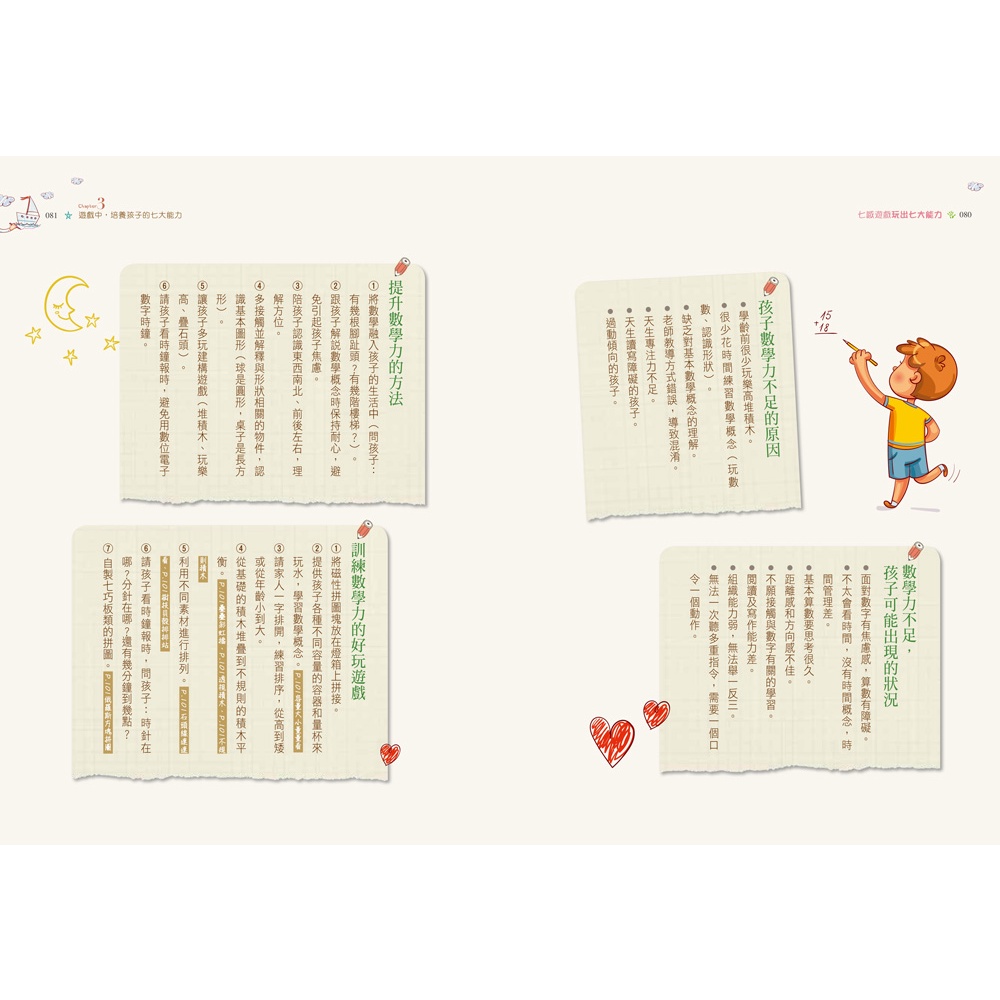 七感遊戲玩出七大能力 080
15
+18
孩子數學力不足的原因
●學齡前很少玩樂高堆積木。
●很少花時間練習數學概念（玩數
數、認識形狀）。
●缺乏對基本數學概念的理解。
●老師教導方式錯誤，導致混淆。
●天生專注力不足。
●天生讀寫障礙的孩子。
●過動傾向的孩子。
數學力不足，
孩子可能出現的狀況
●面對數字有焦慮感，算數有障礙。
●不太會看時間，沒有時間概念，時
間管理差。
●基本算數要思考很久。
●距離感和方向感不佳。
●不願接觸與數字有關的學習。
●閱讀及寫作能力差。
●組織能力弱，無法舉一反三。
●無法一次聽多重指令，需要一個口
令一個動作。
081 Chapter 3
遊戲中，培養孩子的七大能力
提升數學力的方法
①將數學融入孩子的生活中（問孩子：
有幾根腳趾頭？有幾階樓梯？）。
②跟孩子解說數學概念時保持耐心，避
免引起孩子焦慮。
③陪孩子認識東西南北、前後左右，理
解方位。
④多接觸並解釋與形狀相關的物件，認
識基本圖形（球是圓形，桌子是長方
形）。
⑤讓孩子多玩建構遊戲（堆積木、玩樂
高、疊石頭）。
⑥請孩子看時鐘報時，避免用數位電子
數字時鐘。
訓練數學力的好玩遊戲
①將磁性拼圖塊放在燈箱上拼接。
②提供孩子各種不同容量的容器和量杯來
玩水，學習數學概念。P.101容量大小量量看
③請家人一字排開，練習排序，從高到矮
或從年齡小到大。
④從基礎的積木堆疊到不規則的積木平
衡。
⑤利用不同素材進行排列。
⑥請孩子看時鐘報時，問孩子：時針在
哪？分針在哪？還有幾分鐘到幾點？
⑦自製七巧板類的拼圖。P.101俄羅斯方塊拼圖